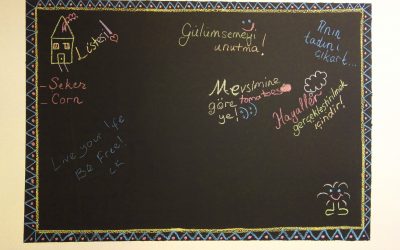 Listesi!
- Şeker
- Corn
Gülümsemeyi
unutma!
Anın
tadını
çıkart...
Mevsimine
göre tomatoes
ye! :):)
Hayaller
gerçekleştirilmek
içindir!
Live your life
Be Free!